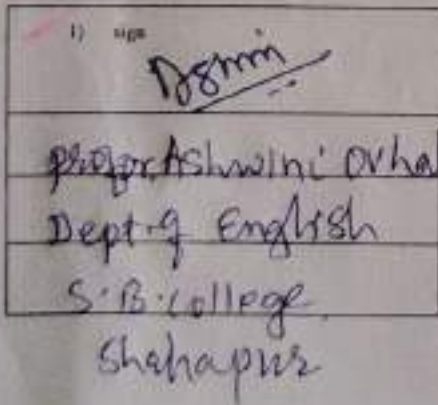 1) sign
Profor. Ashwini Ovhal
Dept. of English
S. B. College
Shahapur